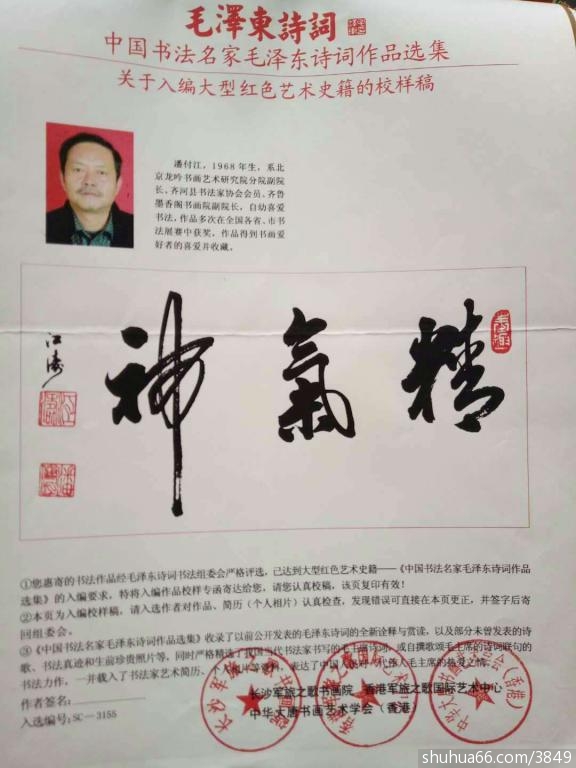 毛澤東詩詞
中国书法名家毛泽东诗词作品选集
关于入编大型红色艺术史籍的校样稿
潘付江，1968年生，系北
京龙吟书画艺术研究院分院副院
长、齐河县书法家协会会员、齐鲁
墨香阁书画院副院长，自幼喜爱
书法，作品多次在全国省、市书
法展赛中获奖，作品得到书画爱
好者的喜爱并收藏。
精氣神
江涛
①您惠寄的书法作品经毛泽东诗词书法组委会严格评选，已达到大型红色艺术史籍——《中国书法名家毛泽东诗词作品
选集》的入编要求，特将入编作品校样专函寄达给您，请您认真校稿，该页复印有效！
②本页为入编校样稿，请入选作者对作品、简历（个人相片）认真检查，发现错误可直接在本页更正，并签字后寄
回组委会。
③《中国书法名家毛泽东诗词作品选集》收录了以前公开发表的毛泽东诗词的全新诠释与赏读，以及部分未曾发表的诗
歌、书法真迹和生前珍贵照片等，同时严格精选了我国当代书法家书写的毛主席诗词，或自撰歌颂毛主席的诗词联句的
书法力作，一并载入了书法家艺术简历、个人相片等资料，表达了中国人民对一代伟人毛主席的热爱之情。
作者签名：
长沙军旅之歌书画院 香港军旅之歌国际艺术中心
入选编号：SC—3155
中华大唐书画艺术学会（香港）
shuhua66.com/3849